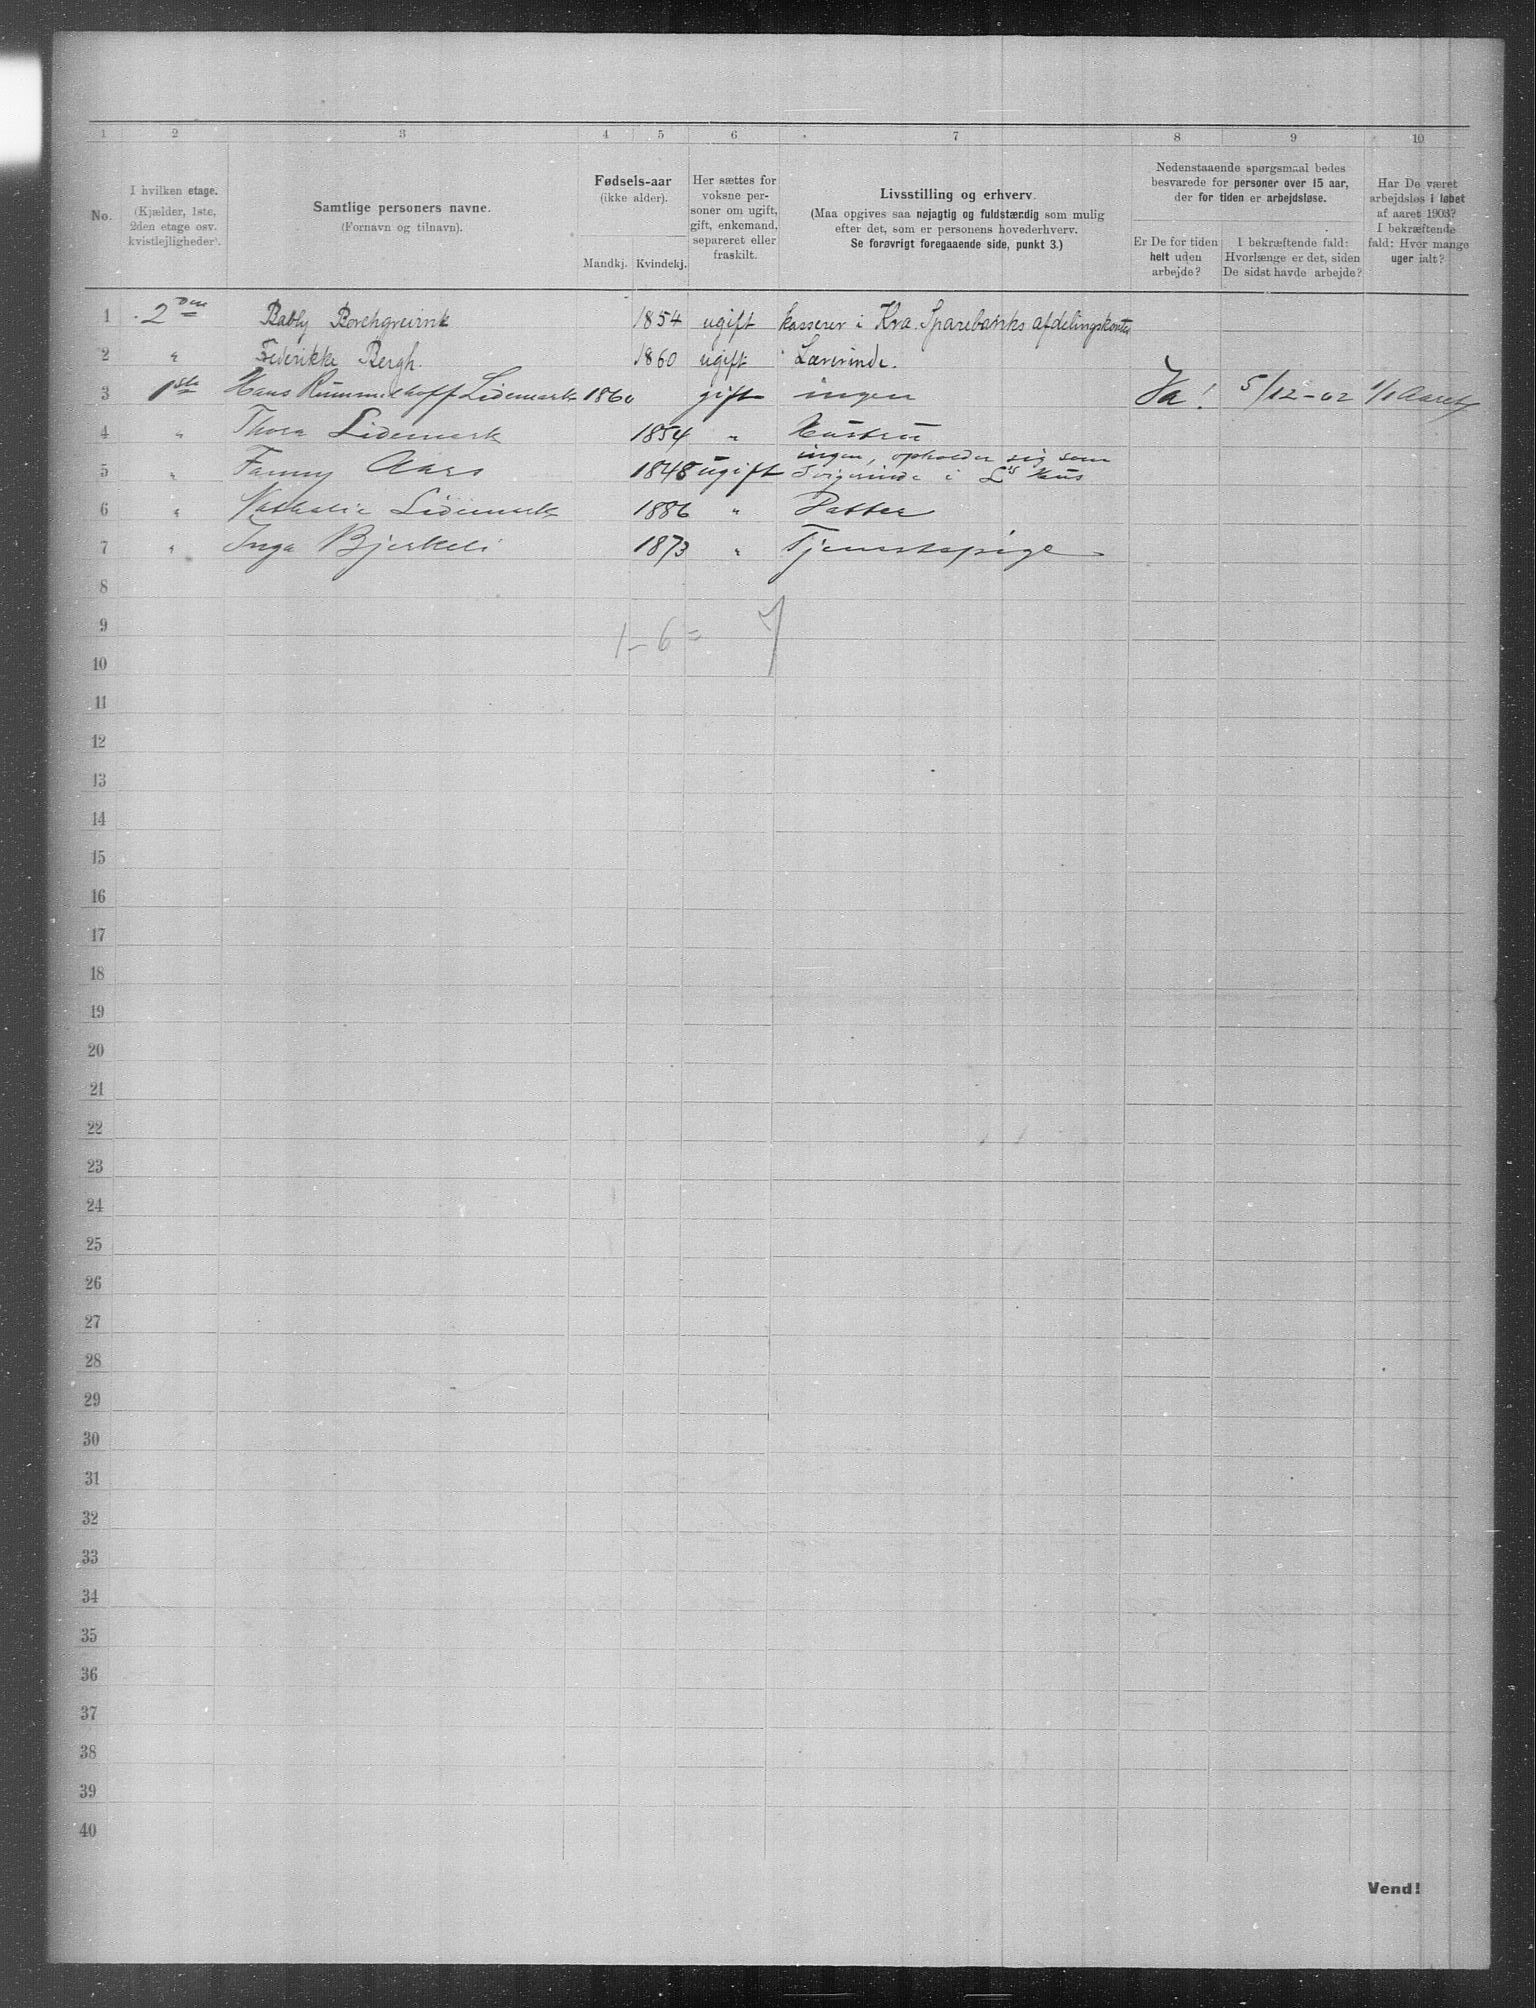 1 2 3 4 5 6 7 8 9 10
No.
I hvilken etage.
(Kjælder, 1ste,
2den etage osv.
kvistlejligheder).
Samtlige personers navne.
(Fornavn og tilnavn).
Fødsels-aar
(ikke alder).
Mandkj. Kvindekj.
Her sættes for
voksne per-
soner om ugift,
gift, enkemand,
separeret eller
fraskilt.
Livsstilling og erhverv.
(Maa opgives saa nøjagtig og fuldstærdig som mulig
efter det, som er personens hovederhverv.
Se forøvrigt foregaaende side, punkt 3.)
Nedenstaaende spørgsmaal bedes
besvarede for personer over 15 aar,
der for tiden er arbejdsløse.
Er De for tiden
helt uden
arbejde?
I bekræftende fald:
Hvorlænge er det, siden
De sidst havde arbejde?
Har De været
arbejdsløs i løbet
af aaret 1903?
I bekræftende
fald: Hvor mange
uger ialt?
1 2den Bably Borchgrevink 1854 ugift kasserer i Kra. Sparebanks afdelingskontor
2 " Federikke Bergh. 1860 ugift Lærerinde.
3 1ste Hans Rummelhoff Lidemark 1860 gift ingen Ja! 5/12-02 1/1 Aaret
4 " Thora Lidemark 1854 " Hustru
5 " Fanny Aars 1848 ugift ingen, opholder sig som
Svigerinde i L's Hus
6 " Nathalie Lidemark 1886 " Datter
7 " Inga Bjerkeli 1873 " Tjenestepige
8
9
1-6= 7
10
11
12
13
14
15
16
17
18
19
20
21
22
23
24
25
26
27
28
29
30
31
32
33
34
35
36
37
38
39
40
Vend!